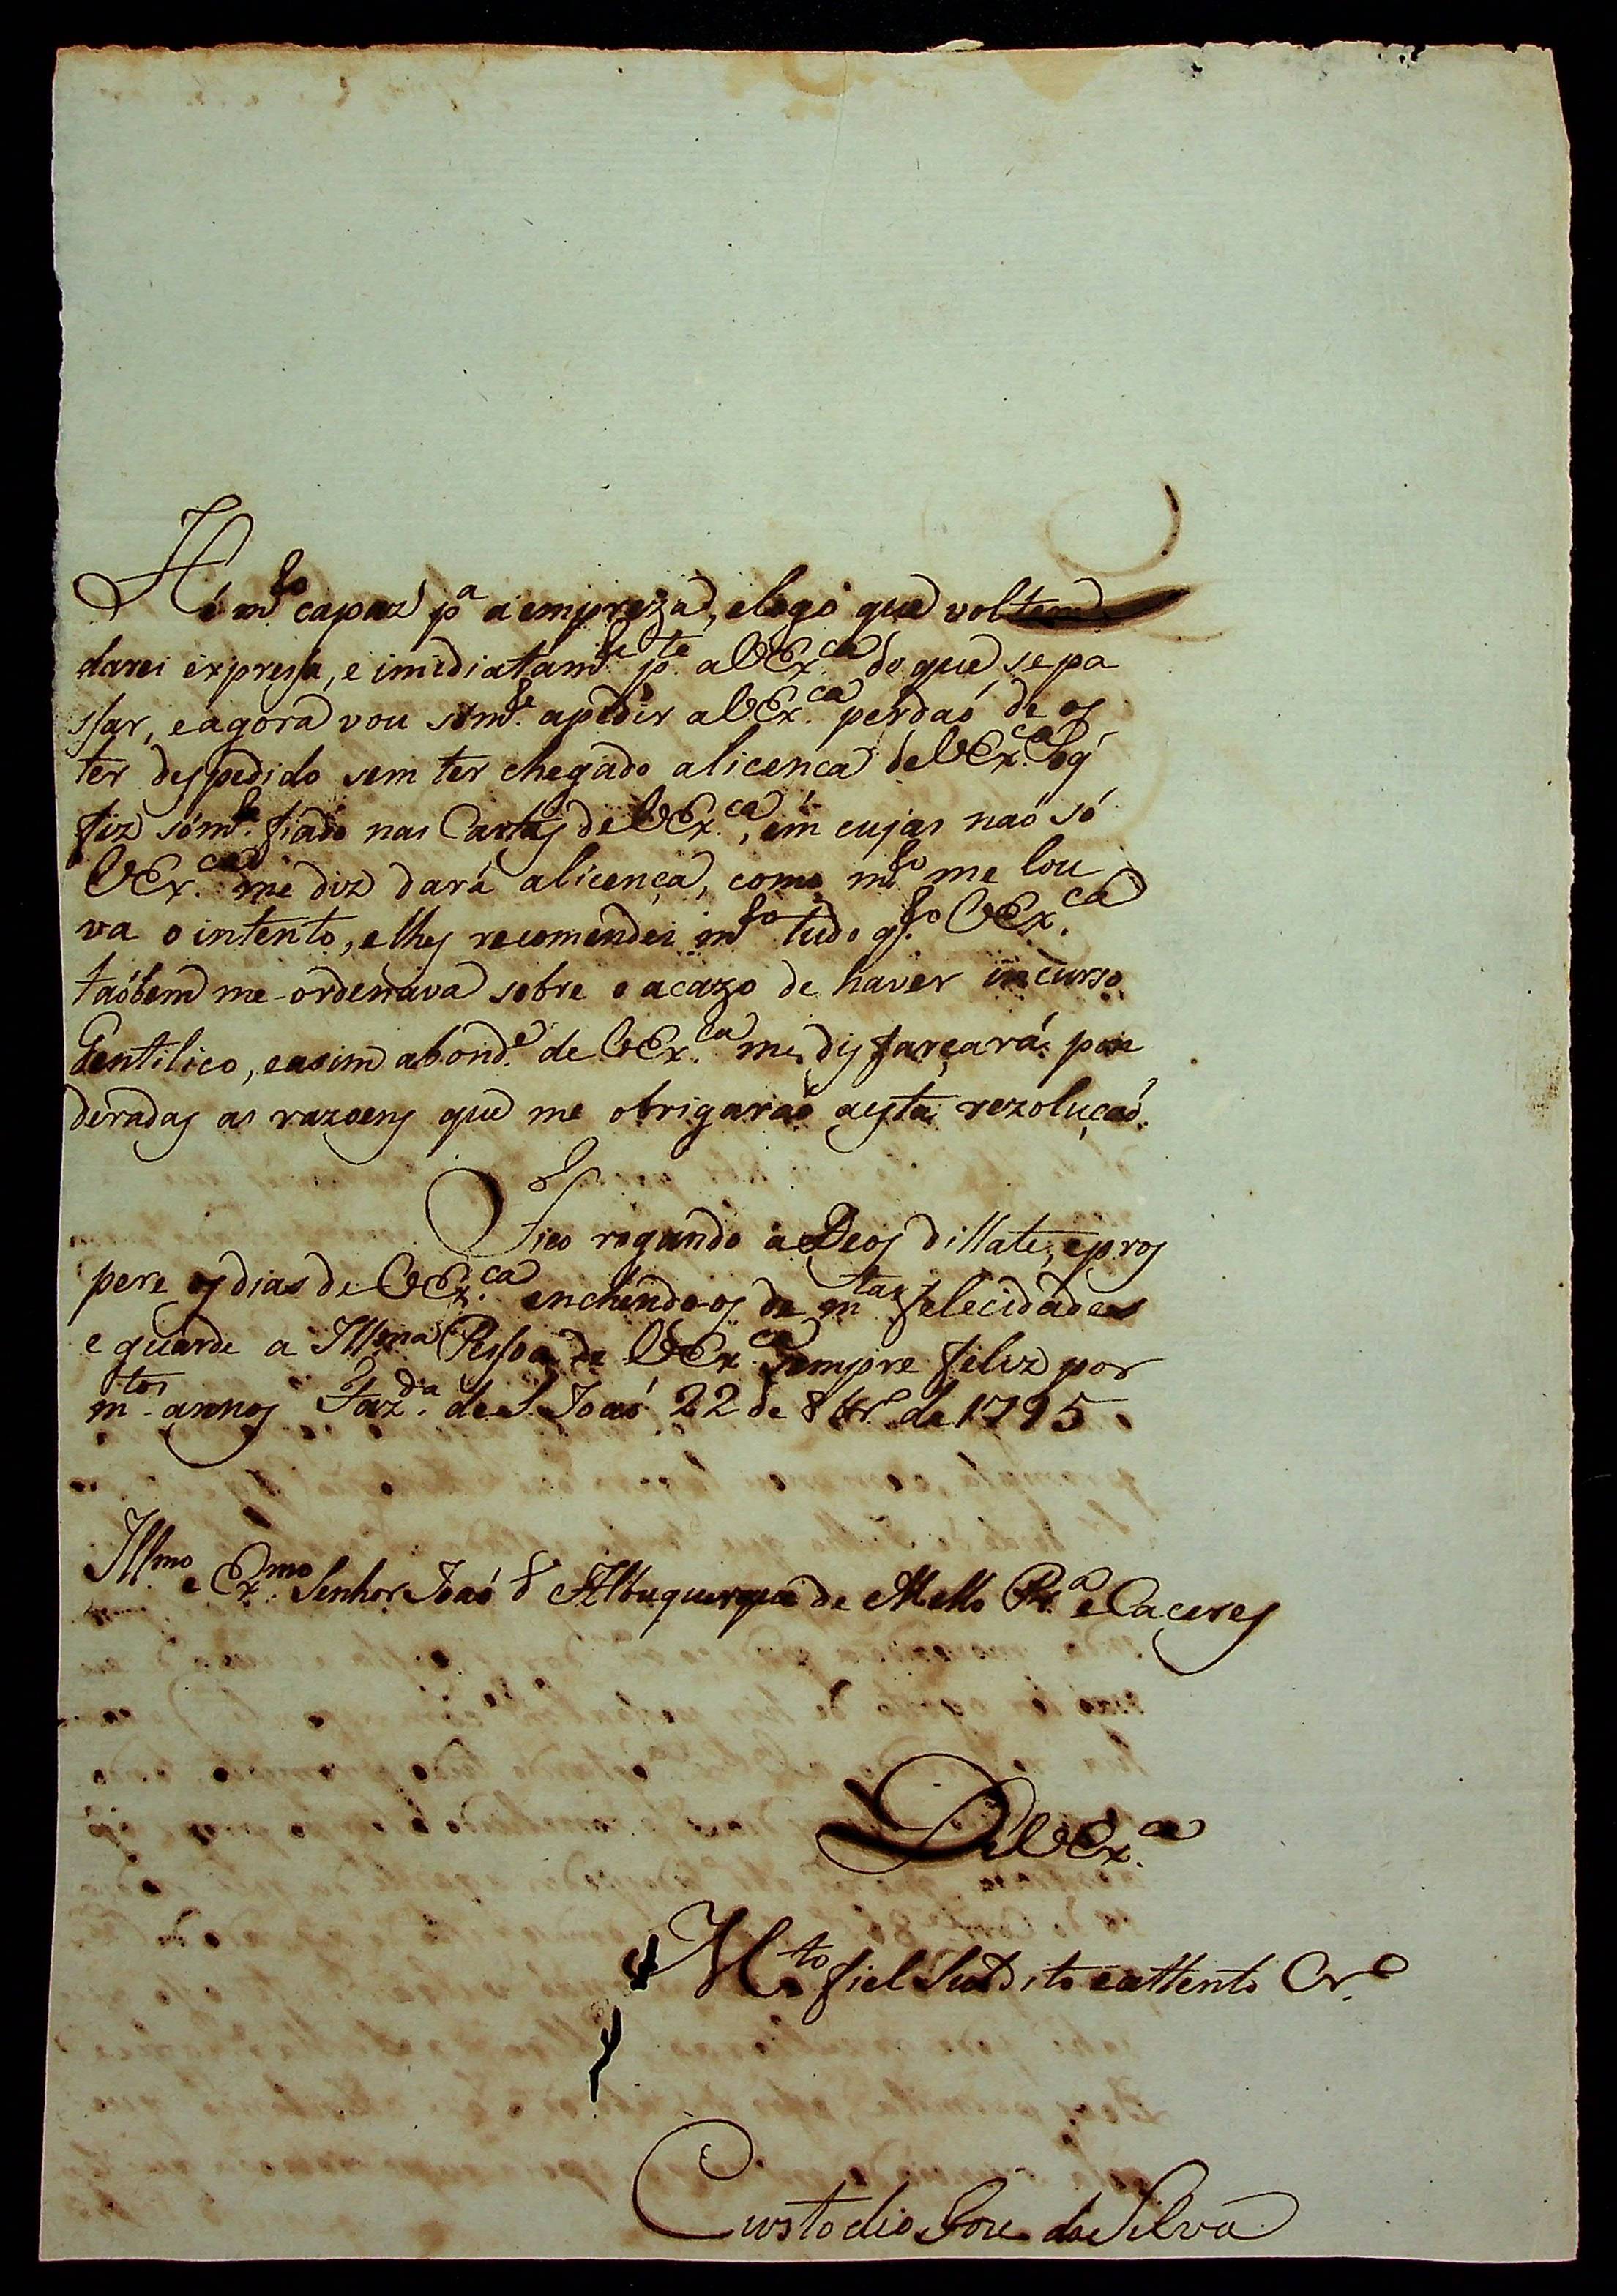 Hé m.to capaz p.a a empreza, e logo que voltem
darei expressa, e imidiatam.te p.te a VEx.ca do que se pa
ssar, e agora vou sóm.te apedir a VEx.ca perdaó de os
ter despedido sem ter chegado alicenca de VEx.ca oq́
fiz sóm.te fiado nas Cartas de VEx.ca, em cujas naó só
VEx.ca me diz dará alicença, como m.to me lou
va o intento, elhes recomendei m.to tudo q.to VEx.ca
taóbem me ordenava sobre o acazo de haver incurso
Gentilico, easim abond.e de VEx.ca me disfarçará pon
deradas as razoens que me obrigaraó aesta rezoluçaó.
Fico rogando a Deos dillate, epros
pere os dias de VEx.ca enchendo-os de m.tas felecidades
e guarde a Ill.ma Pessoa de VEx.ca sempre feliz por
m.tos annos Faz.da de S. Joaó 22 de 8br.o de 1795.
Ill.mo e Ex.mo Senhor Joaó d' Albuquerque de Mello Pr.a e Caceres
De VEx.ca
M.to fiel Subdito e attento Cr.o
Custodio Joze da Silva